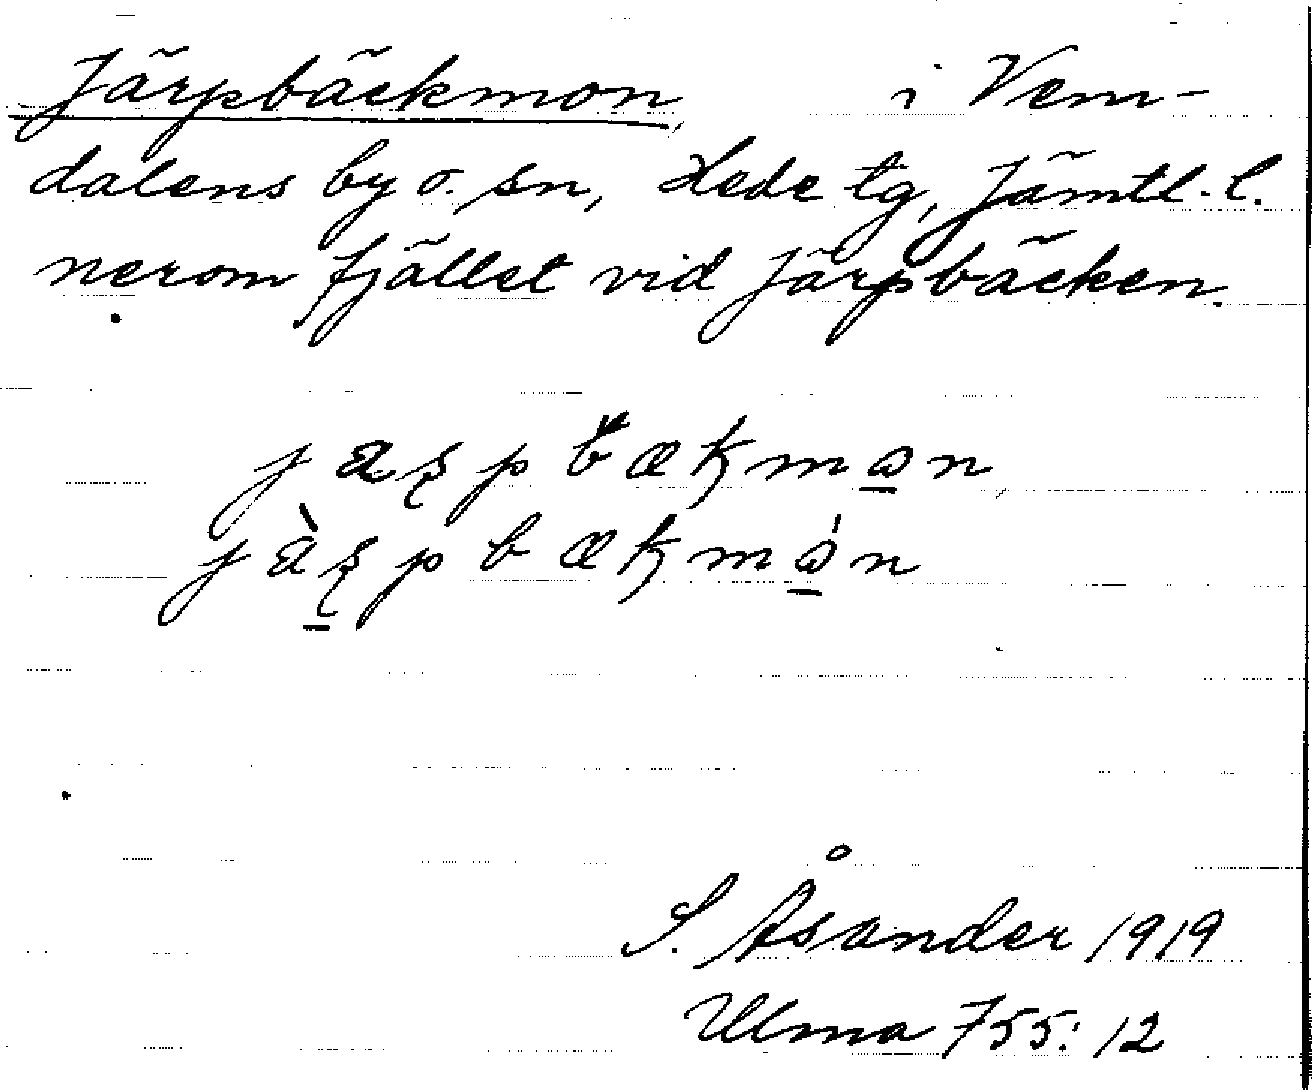 Järpbäckmon, i Vem-
dalens by o. sn, Hede tg, Jämtl. l.
nerom fjället vid Järpbäcken.
S. Åsander 1919
Ulma 755: 12